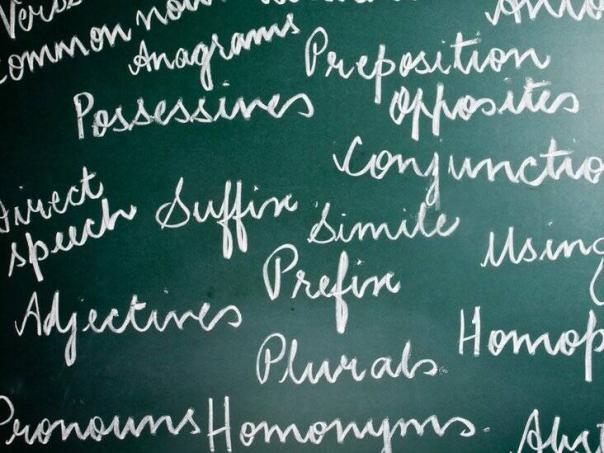 common noun
Anagrams
Preposition
Possessives
Opposites
Conjunctio
Direct
speech
Suffix
Simile
Using
Prefix
Adjectives
Homop
Plurals
Pronouns
Homonyms.